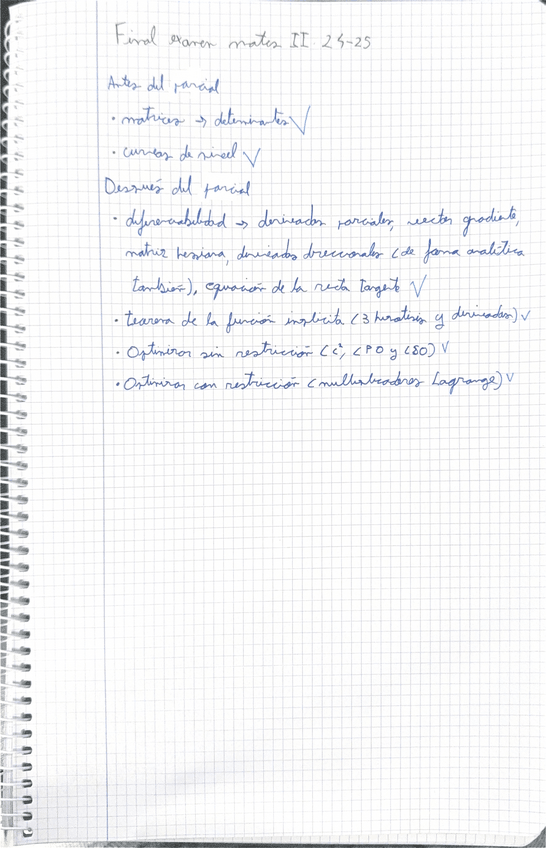 Final examen mates II 24-25
Antes del parcial
· matrices → determinantes √
· curvas de nivel √
Después del parcial
· diferenciabilidad → derivadas parciales, vector gradiente,
matriz hessiana, derivadas direccionales (de forma analítica
también), equación de la recta tangente √
· teorema de la función implícita (3 hipótesis y derivadas) √
· Optimizar sin restricción (C², CPO y CSO) √
· Optimizar con restricción (multiplicadores Lagrange) √